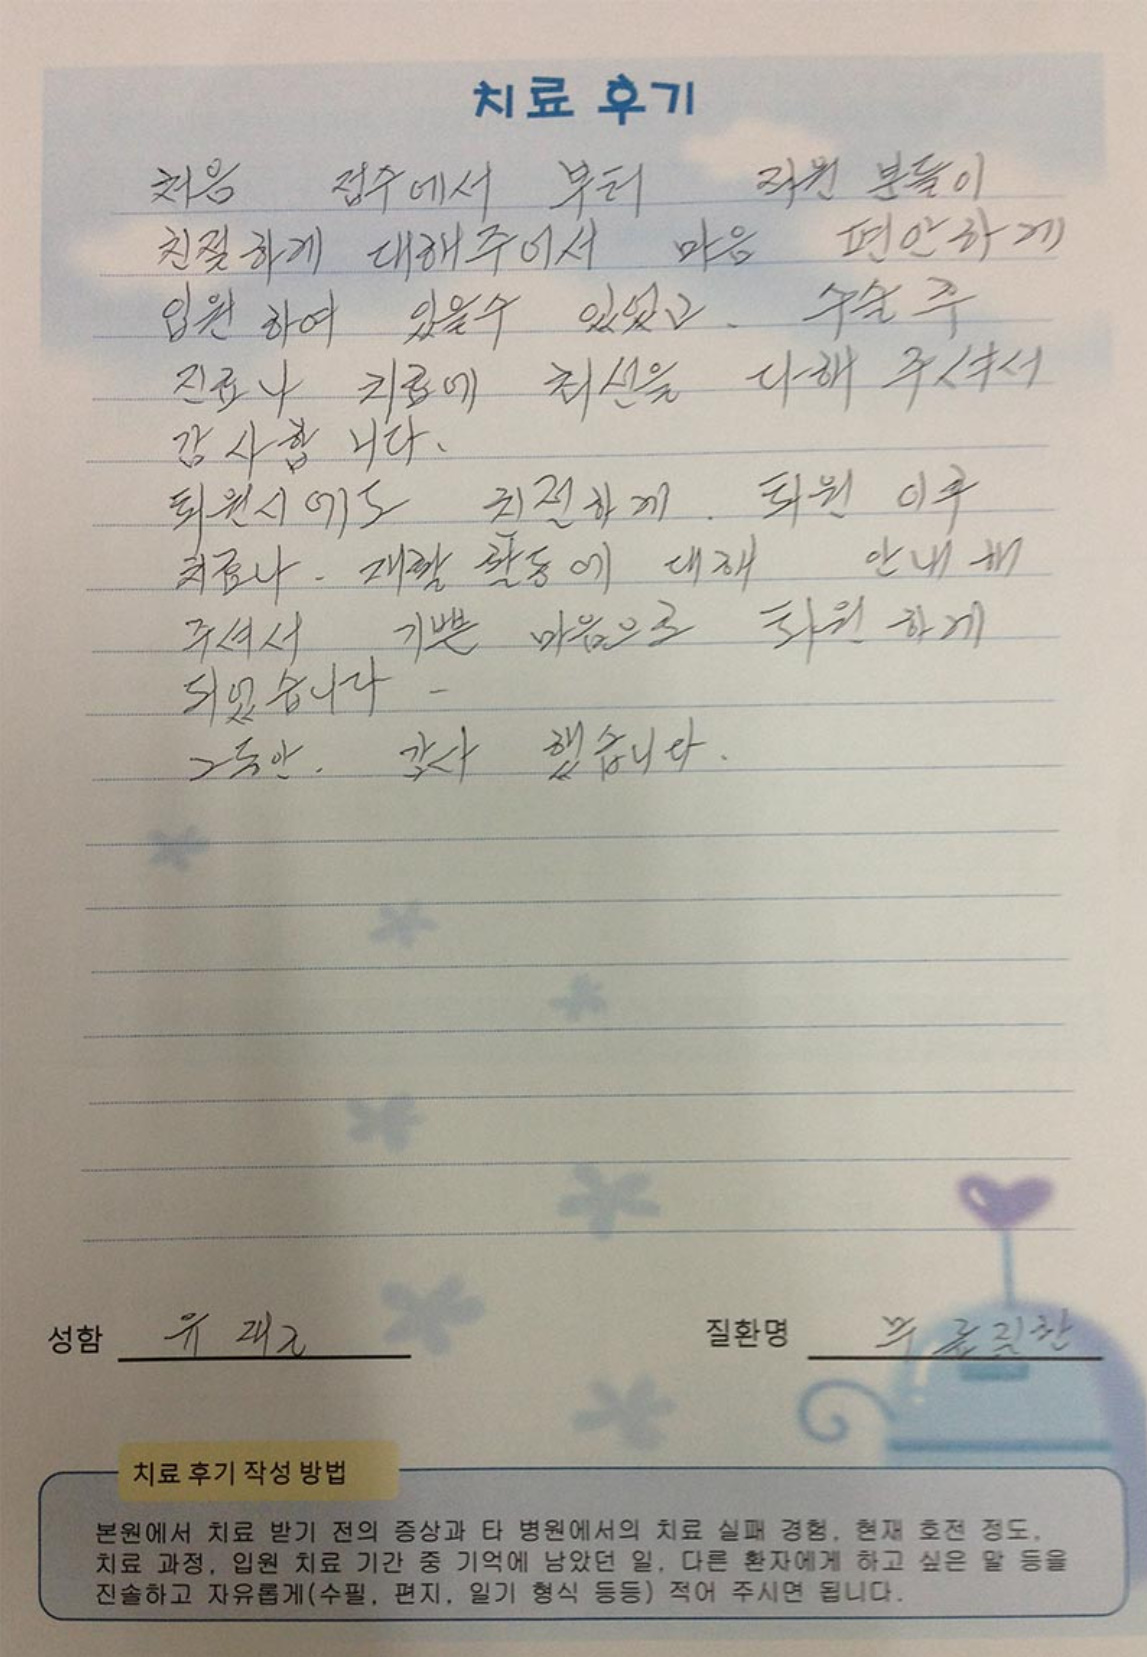 치료 후기
처음 접수에서 부터 직원 분들이
친절하게 대해주어서 마음 편안하게
입원하여 있을수 있었고. 수술 후
진료나 치료에 최선을 다해 주셔서
감사합니다.
퇴원시에도 친절하게. 퇴원 이후
치료나. 재활 활동에 대해 안내해
주셔서 기쁜 마음으로 퇴원하게
되었습니다
그동안. 감사 했습니다.
성함 유재
질환명
치료 후기 작성 방법
본원에서 치료 받기 전의 증상과 타 병원에서의 치료 실패 경험, 현재 호전 정도,
치료 과정, 입원 치료 기간 중 기억에 남았던 일, 다른 환자에게 하고 싶은 말 등을
진솔하고 자유롭게(수필, 편지, 일기 형식 등등) 적어 주시면 됩니다.